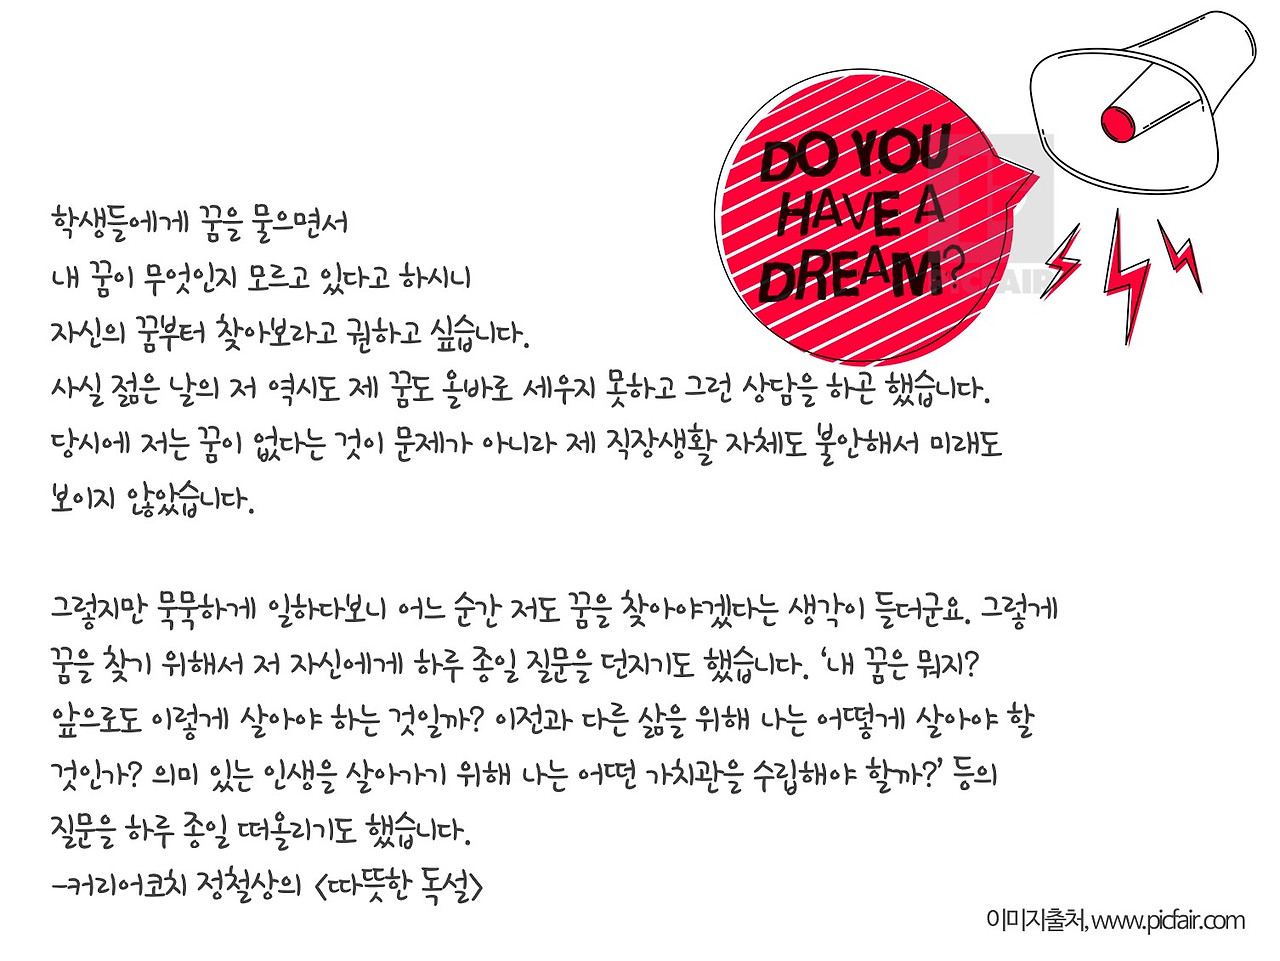 DO YOU
HAVE A
DREAM?
PICFAIR
학생들에게 꿈을 물으면서
내 꿈이 무엇인지 모르고 있다고 하시니
자신의 꿈부터 찾아보라고 권하고 싶습니다.
사실 젊은 날의 저 역시도 제 꿈도 올바로 세우지 못하고 그런 상담을 하곤 했습니다.
당시에 저는 꿈이 없다는 것이 문제가 아니라 제 직장생활 자체도 불안해서 미래도
보이지 않았습니다.
그렇지만 묵묵하게 일하다보니 어느 순간 저도 꿈을 찾아야겠다는 생각이 들더군요. 그렇게
꿈을 찾기 위해서 저 자신에게 하루 종일 질문을 던지기도 했습니다. ‘내 꿈은 뭐지?
앞으로도 이렇게 살아야 하는 것일까? 이전과 다른 삶을 위해 나는 어떻게 살아야 할
것인가? 의미 있는 인생을 살아가기 위해 나는 어떤 가치관을 수립해야 할까?’ 등의
질문을 하루 종일 떠올리기도 했습니다.
-커리어코치 정철상의 <따뜻한 독설>
이미지출처, www.picfair.com